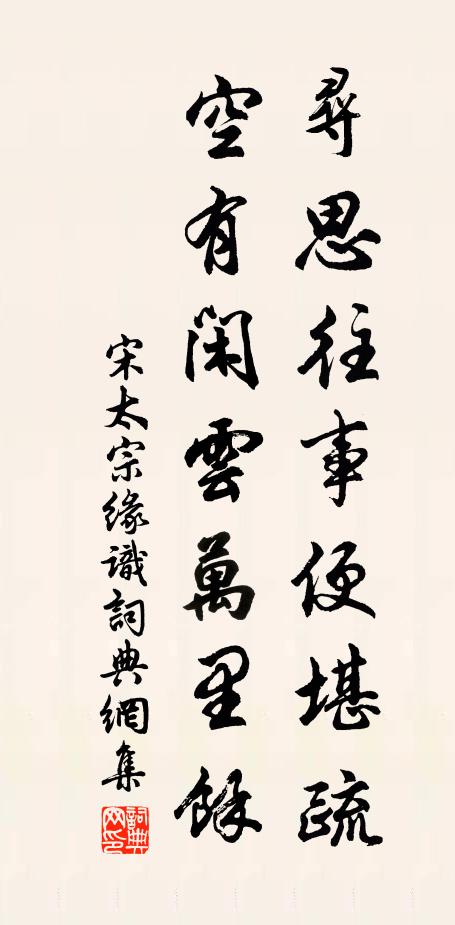 尋思往事便堪疏
空有閑雲萬里餘
宋太宗緣識詞典網集
詞典网印